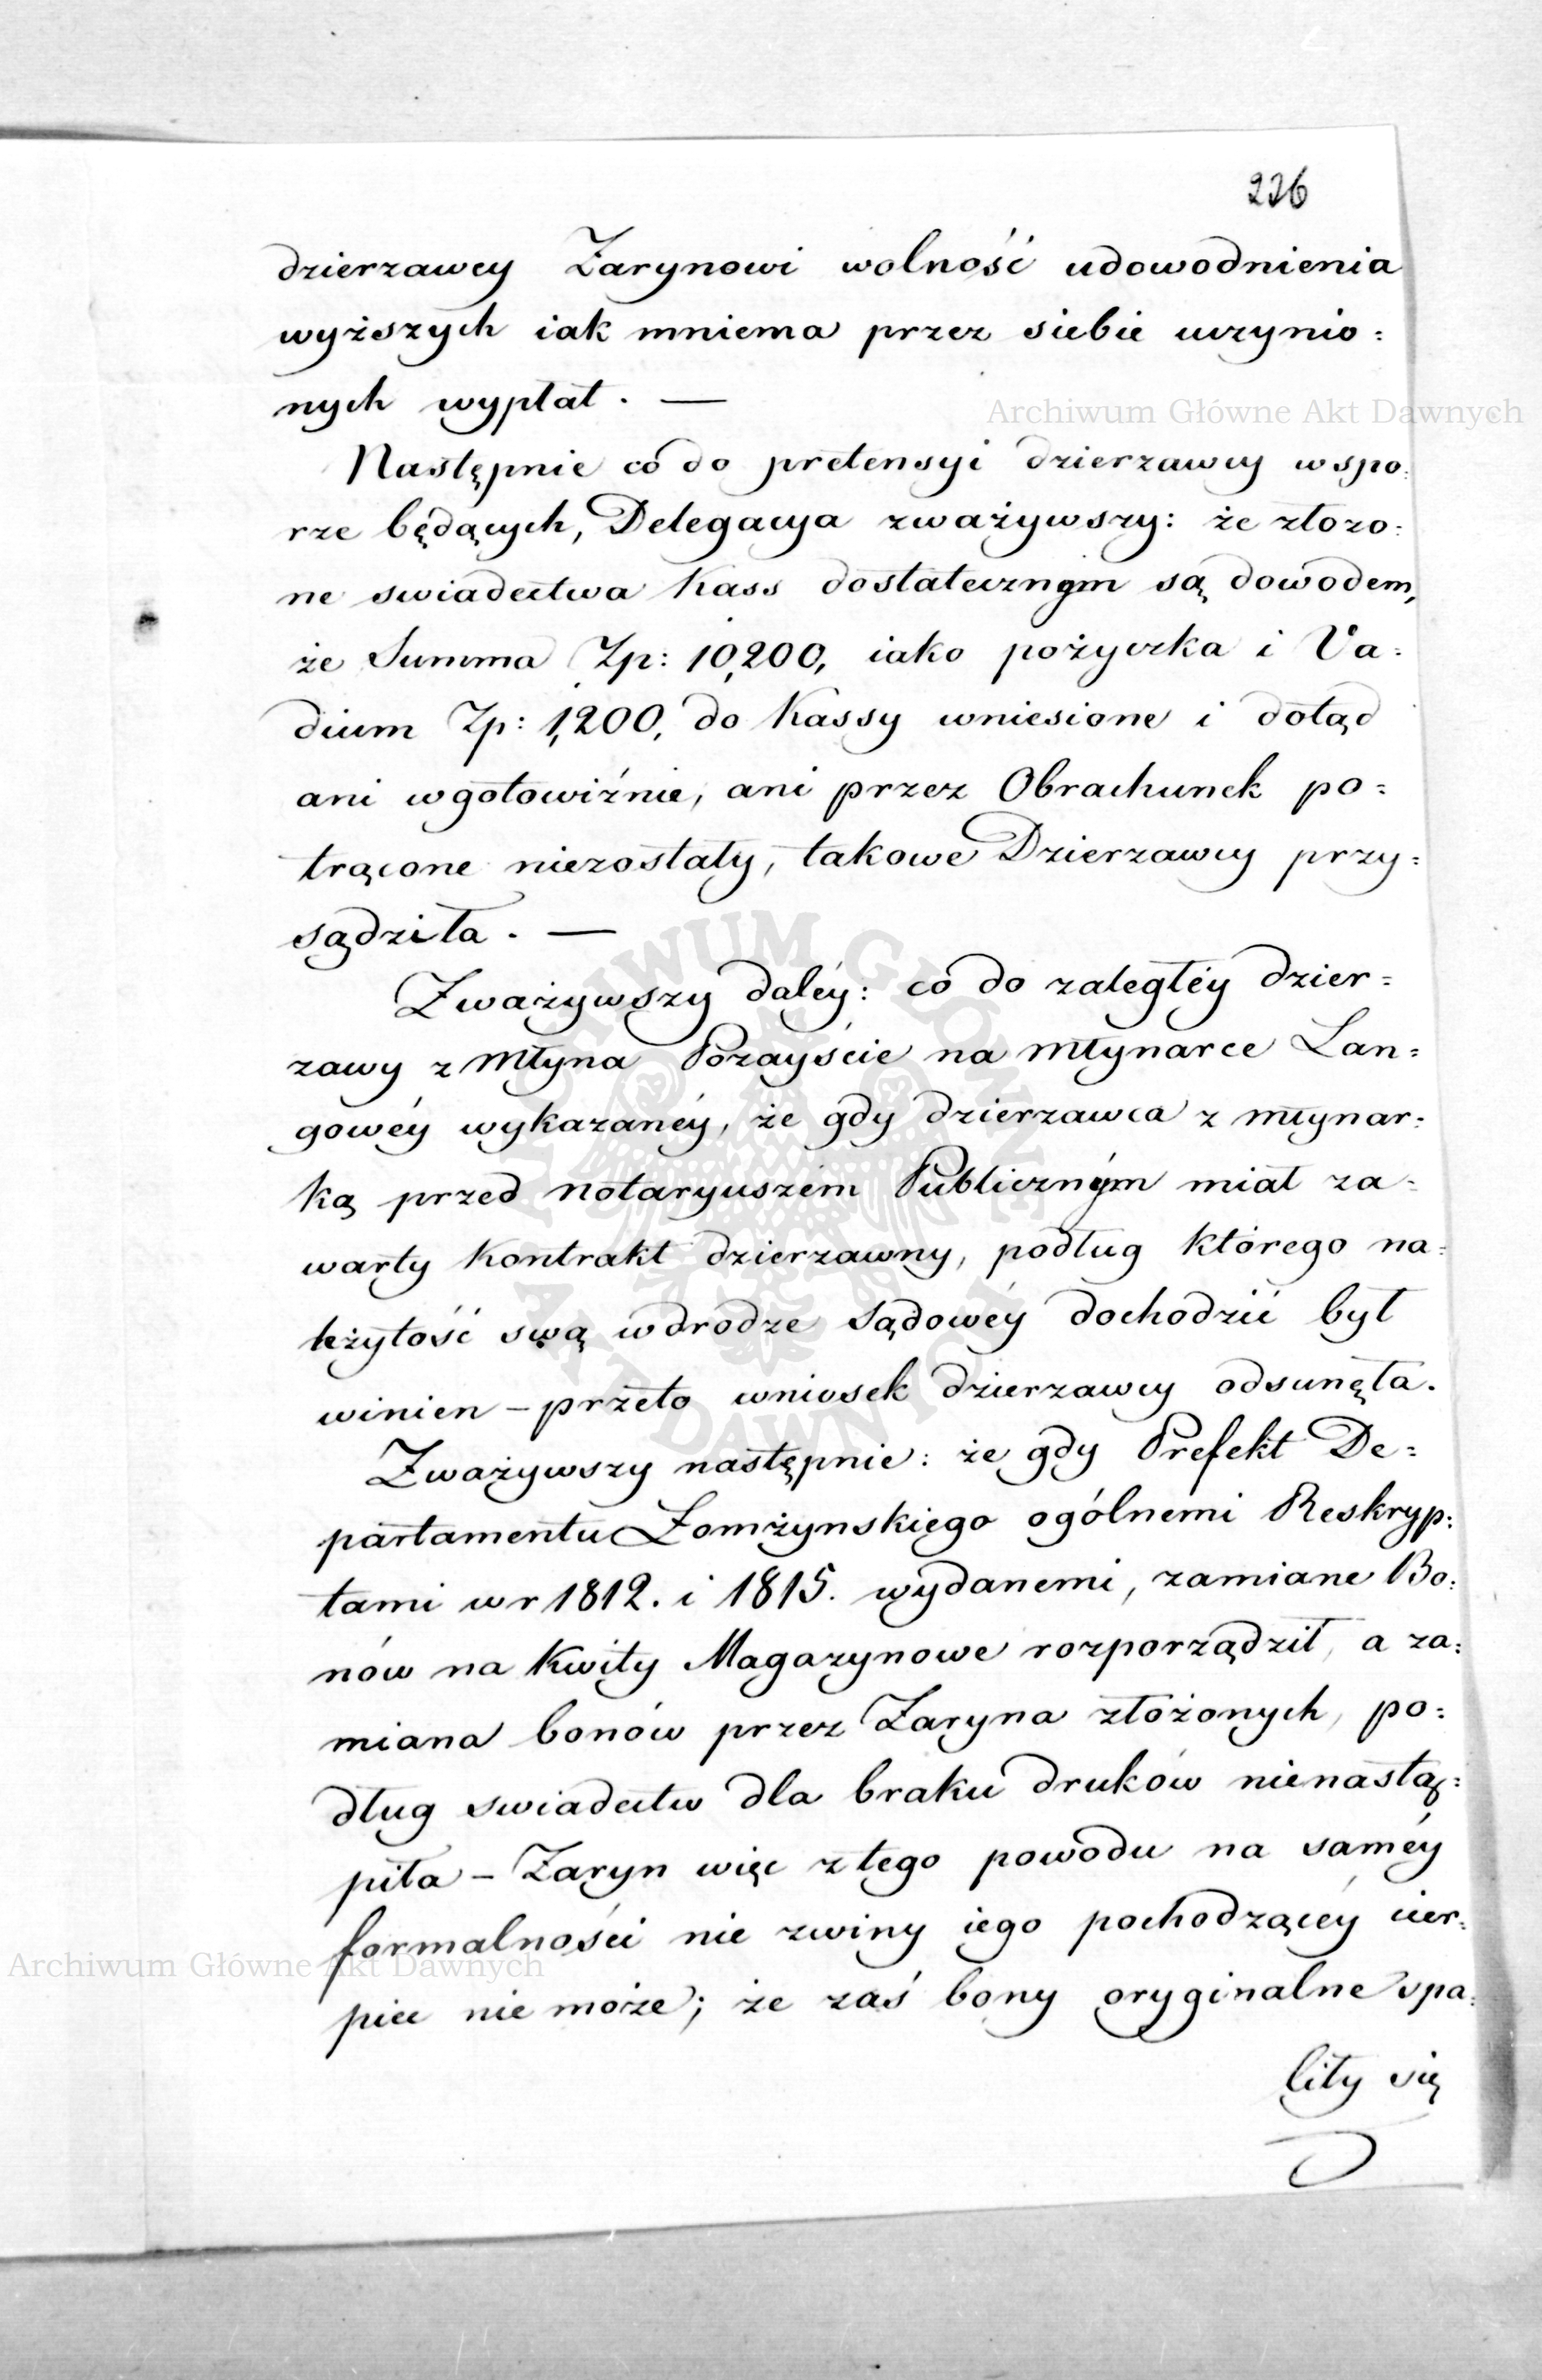 226
dzierzawcy Zarynowi wolność udowodnienia
wyższych iak mniema przez siebie uczynio=
nych wypłat. —
Archiwum Główne Akt Dawnych
Następnie co do pretensyi dzierzawcy wspo=
rze będących, Delegacya zważywszy: że złozo=
ne swiadectwa Kass dostatecznym są dowodem,
że Summa Zp: 10,200, iako pożyczka i Va=
dium Zp: 1,200, do Kassy wniesione i dotąd
ani wgotowiźnie, ani przez Obrachunek po=
trącone niezostały, takowe Dzierzawcy przy=
sądziła. —
Zważywszy daléy: co do zaległéy dzier=
zawy z Młyna Pozayście na Młynarce Lan=
gowéy wykazanéy, że gdy dzierzawca z Młynar=
ką przed Notaryuszem Publicznym miał za=
warty Kontrakt dzierzawny, podług którego na=
leżytość swą wdrodze Sądowéy dochodzić był
winien – przeto wniosek dzierzawcy odsunęła.
Zważywszy następnie: że gdy Prefekt De=
partamentu Łomżynskiego ogólnemi Reskryp=
tami w r 1812. i 1815. wydanemi, zamiane Bo=
nów na Kwity Magazynowe rozporządził, a za=
miana bonów przez Zaryna złożonych, po=
dług swiadectw dla braku druków nienastą=
piła – Zaryn więc ztego powodu na saméy
formalności nie zwiny iego pochodzącéy cier=
Archiwum Główne Akt Dawnych
piec nie może; że zaś bony oryginalne spa=
liły się
ARCHIWUM GŁÓWNE AKT DAWNYCH